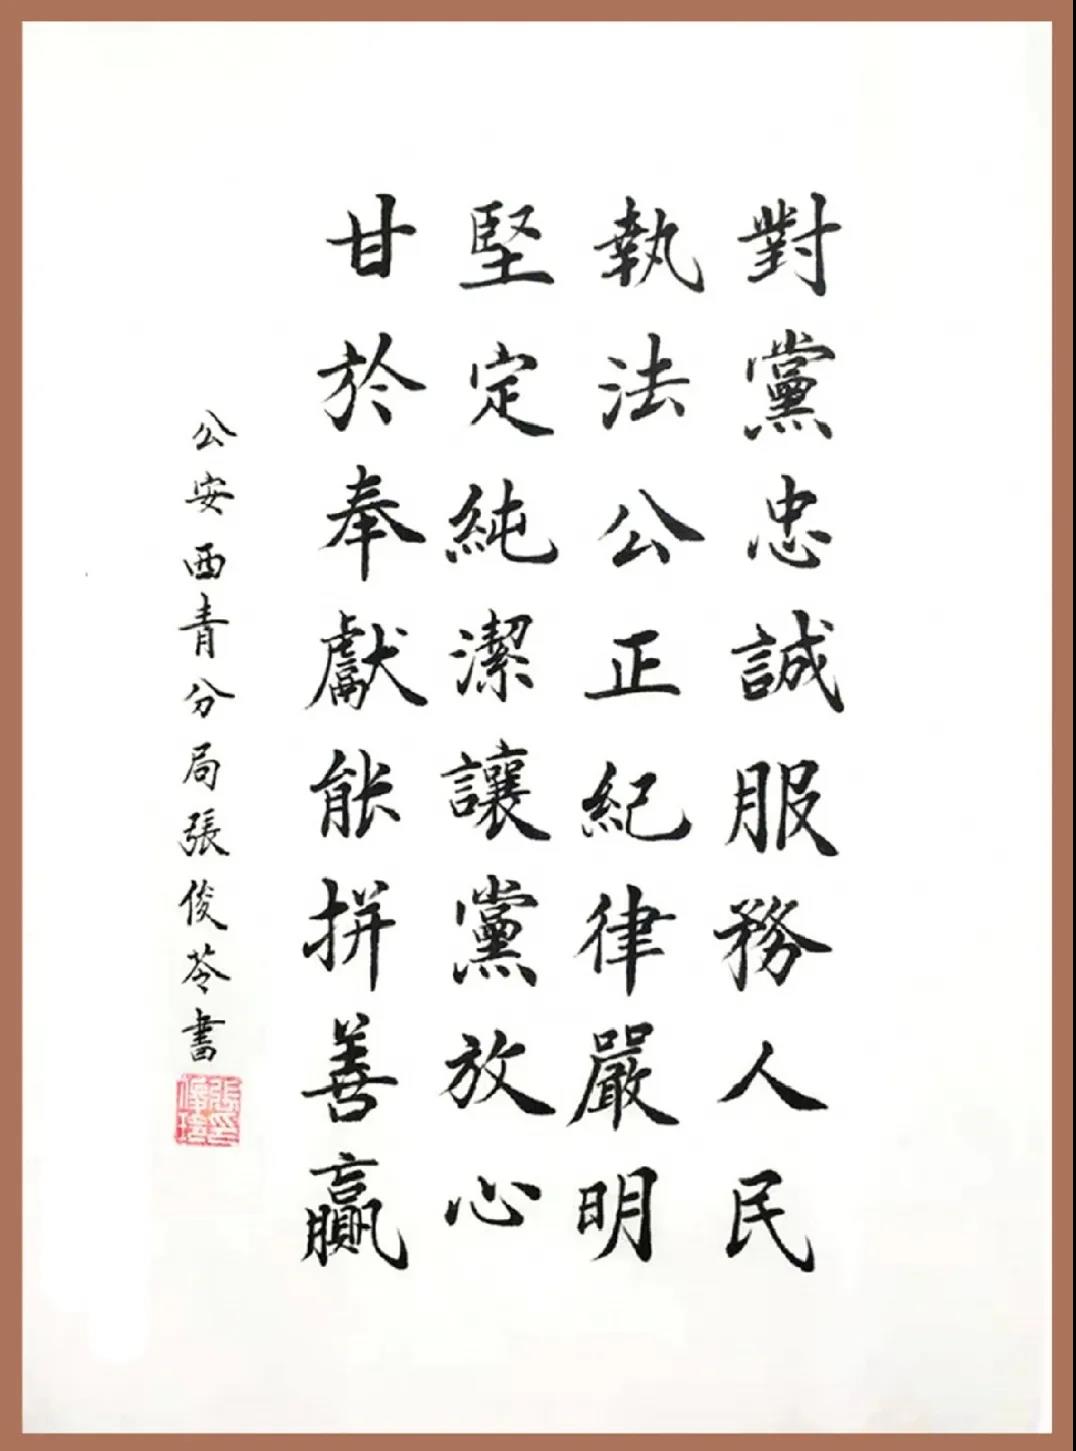 對黨忠誠服務人民
執法公正紀律嚴明
堅定純潔讓黨放心
甘於奉獻能拼善贏
公安西青分局張俊苓書